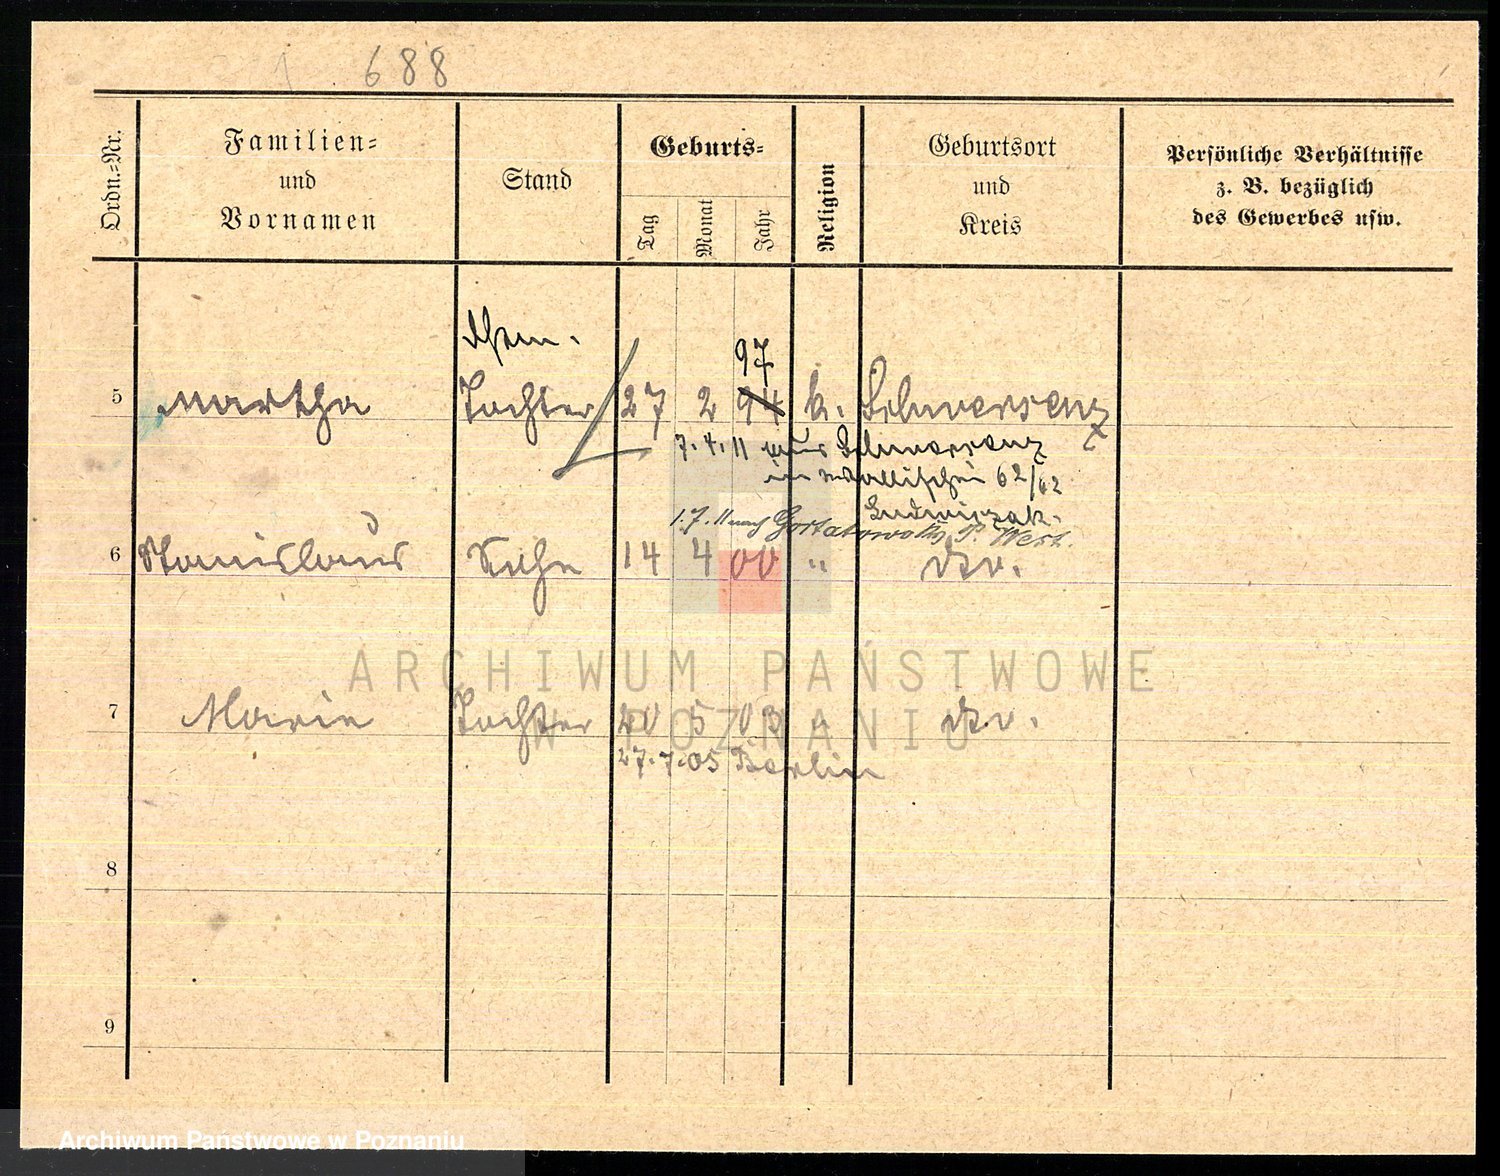 688
Ordn.-Nr.
Familien-
und
Vornamen
Stand
Geburts-
Tag
Monat
Jahr
Religion
Geburtsort
und
Kreis
Persönliche Verhältnisse
z. B. bezüglich
des Gewerbes usw.
97
5 Martha Tochter 27 2 94 k. Schwersenz
7.4.11 aus Schwersenz
in Wallischei 62/62
1.7.11 nach Gortatowo Kr. P. West.
6 Stanislaus Sohn 14 4 00 " do.
7 Marie Tochter 20 5 03 " do.
27.7.05 Berlin
8
9
ARCHIWUM PAŃSTWOWE
W POZNANIU
Archiwum Państwowe w Poznaniu